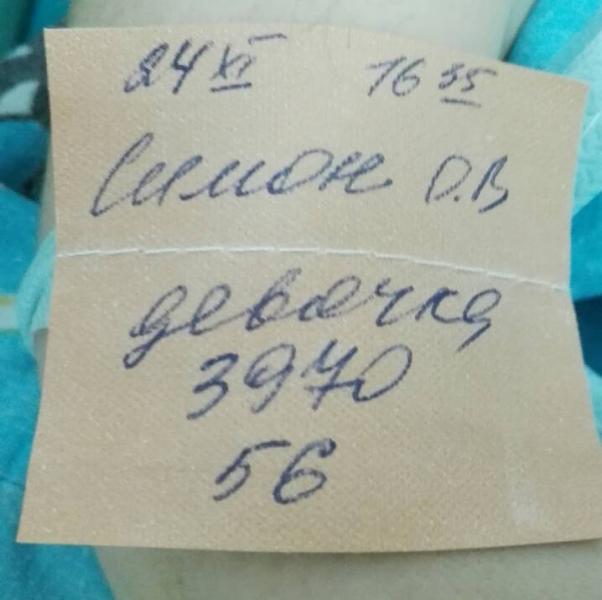 24 XI 16 35
Симон О.В
девочка
3970
56